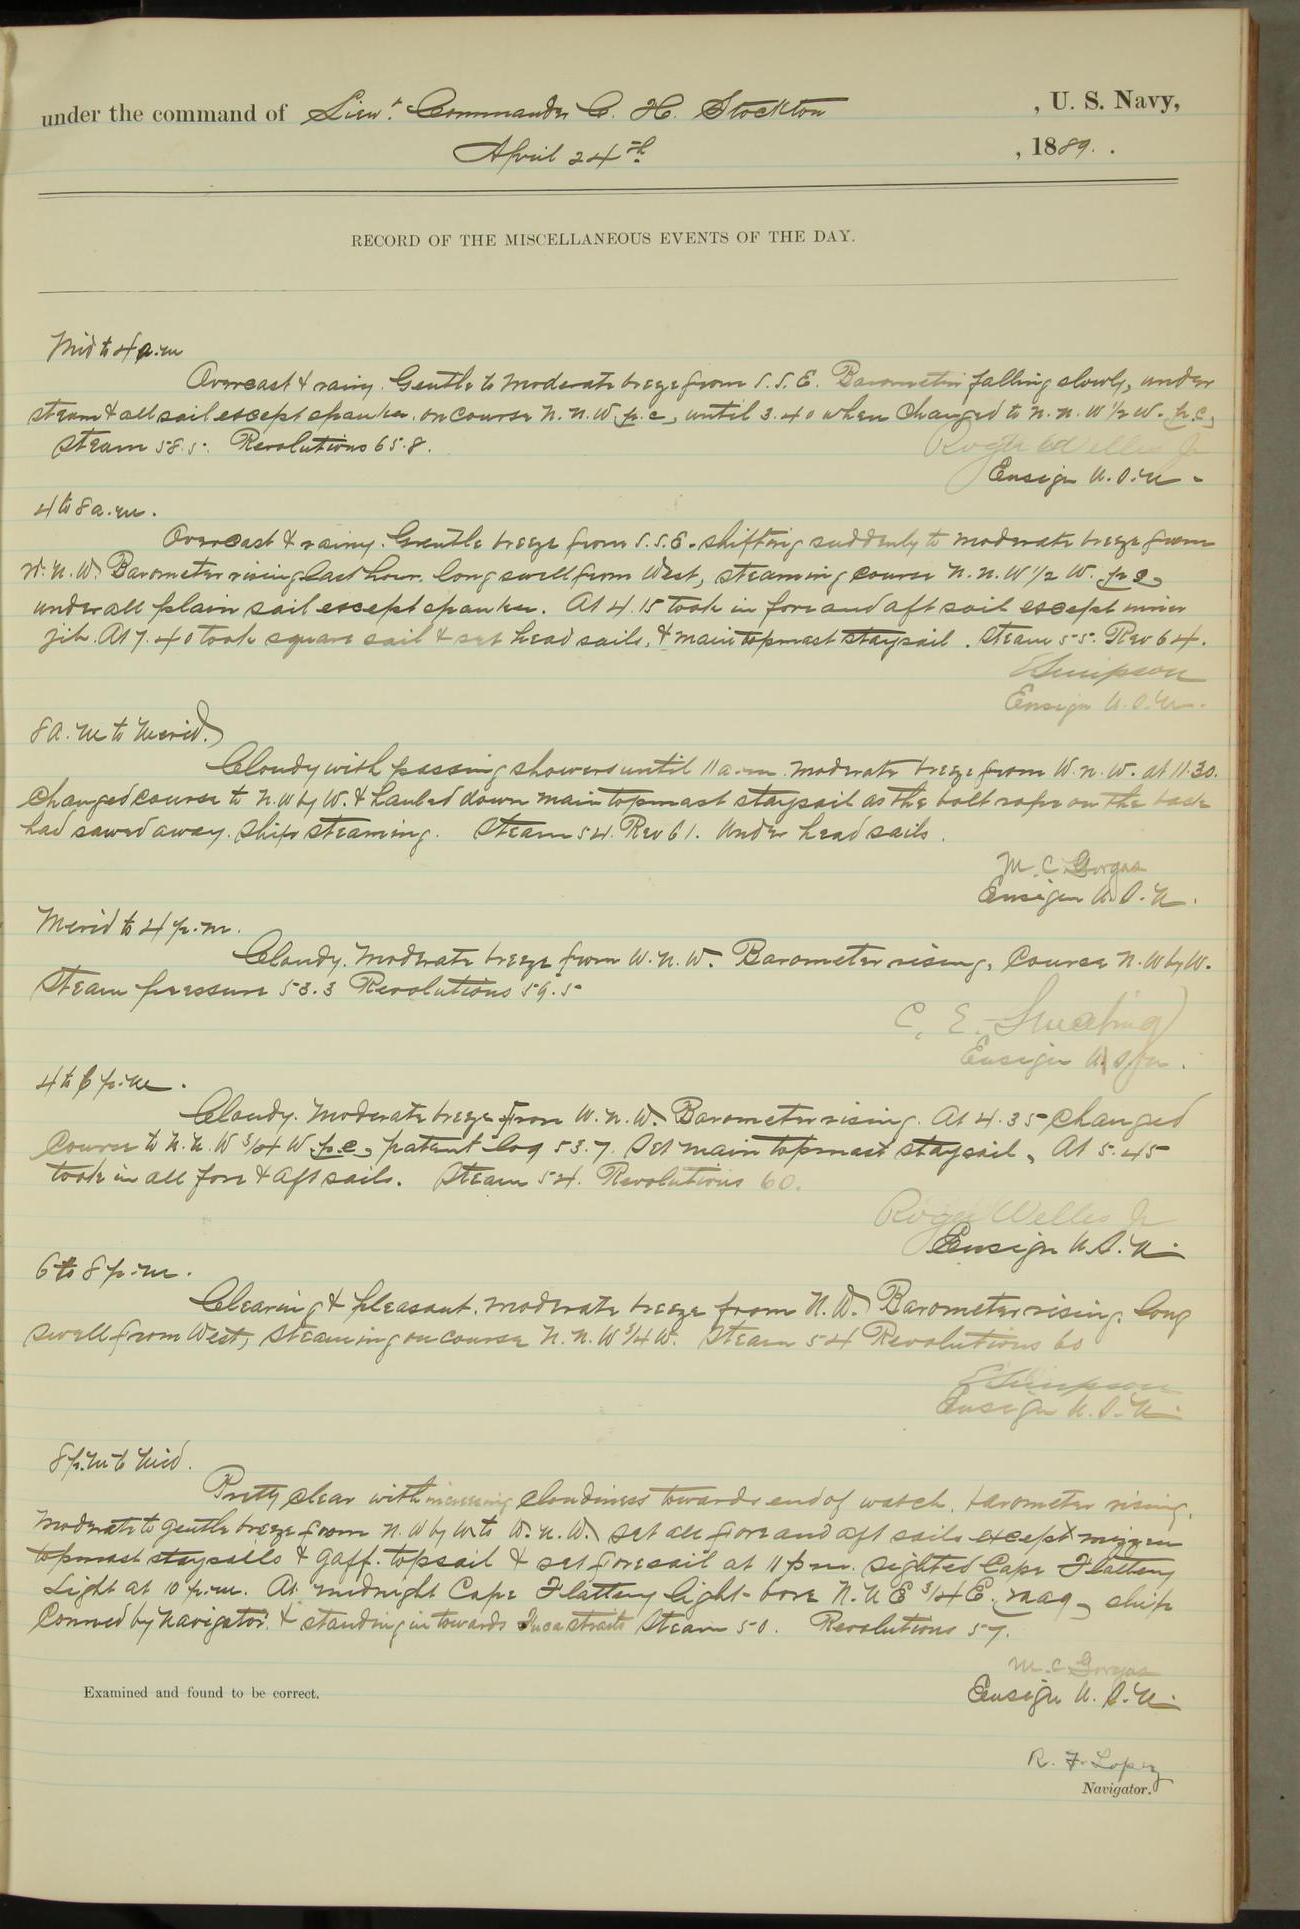 under the command of Lieut. Commander C. H. Stockton, U. S. Navy,
April 24th, 1889.
RECORD OF THE MISCELLANEOUS EVENTS OF THE DAY.
Mid to 4 a.m
Overcast & rainy. Gentle to moderate breeze from S.S.E. Barometer falling slowly, under
steam & all sail except spanker. on course N.N.W. p.c., until 3.40 when changed to N.N.W ½ W. p.c.,
Steam 58.5. Revolutions 65.8.
Roger Welles Jr
Ensign U.S.N.
4 to 8 a.m.
Overcast & rainy. Gentle breeze from S.S.E. shifting suddenly to moderate breeze from
W.N.W. Barometer rising last hour. long swell from West, steaming course N.N.W ½ W. p.c.
under all plain sail except spanker. At 4.15 took in fore and aft sail except inner
jib. At 7.40 took square sail & set head sails, & main topmast staysail. Steam 55. Rev 64.
E Simpson
Ensign U.S.N.
8 a.m to Merid.
Cloudy with passing showers until 11 a.m. moderate breeze from W.N.W. at 11.30.
Changed course to N.W by W. & hauled down main topmast staysail as the bolt rope on the tack
had sawed away. Ship steaming. Steam 54. Rev 61. Under head sails.
M. C. Gorgas
Ensign U.S.N.
Merid to 4 p.m.
Cloudy. Moderate breeze from W.N.W. Barometer rising. Course N.W by W.
Steam pressure 53.3 Revolutions 59.5
C. E.
Ensign U.S.N.
4 to 6 p.m.
Cloudy. Moderate breeze from W.N.W. Barometer rising. At 4.35 changed
Course to N.N.W ¾ W p.c., patent log 53.7. Set main topmast staysail, At 5.45
took in all fore & aft sails. Steam 54. Revolutions 60.
Roger Welles Jr
Ensign U.S.N.
6 to 8 p.m.
Clearing & pleasant. moderate breeze from N.W. Barometer rising. long
swell from West, steaming on course N.N.W ¾ W. Steam 54 Revolutions 60
E Simpson
Ensign U.S.N.
8 p.m to Mid.
Pretty clear with increasing cloudiness towards end of watch. barometer rising.
Moderate to gentle breeze from N.W by W. to W.N.W. set all fore and aft sails except mizzen
topmast staysails & gaff. topsail & set foresail at 11 p.m. Sighted Cape Flattery
Light at 10 p.m. At midnight Cape Flattery light bore N.N.E ¾ E. mag, ship
Conned by Navigator. & standing in towards Fuca straits Steam 50. Revolutions 57.
M. C. Gorgas
Ensign U.S.N.
Examined and found to be correct.
R. F. Lopez
Navigator.